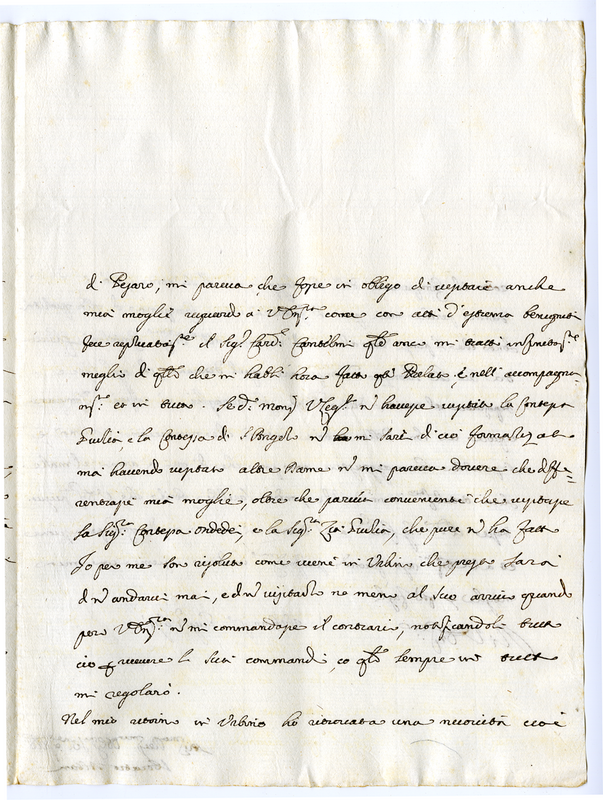 di Pesaro; mi pareva che fosse in obligo di visitare anche
mia moglie riguardo a V. Ill.ma come con atti d'estrema benignità
fece replicatas.te il Sig.r Card.l Cantelmi q.le anc mi trattò infinitas.te
meglio di q.llo che mi habbi hora fatto q.to Prelato, e nell'accompagna-
m.to et in tutto. Se d.o Mons.r non havesse visitato la Contessa
Giulia, e la Contessa di S. Angelo n mi sarei di ciò formaliz
ma havendo visitato altre Dame n mi pareva dovere che diffe=
rentiasse mia moglie, oltre che pareva conveniente che visitasse
la Sig.ra Contessa Ondedei, e la Sig.ra Zia Giulia, che pure n ha fatto
Io per me son risoluto come viene in Urbino che presto sarà
di n andarci mai, e di n visitarlo ne meno al suo arrivo quando
però V. Ill.ma n mi commandasse il contrario, notificandoli tutto
ciò p ricevere li suoi commandi, co q.li sempre in tutto
mi regolarò.
Nel mio ritorno in Urbino ho ritrovata una novità cioè